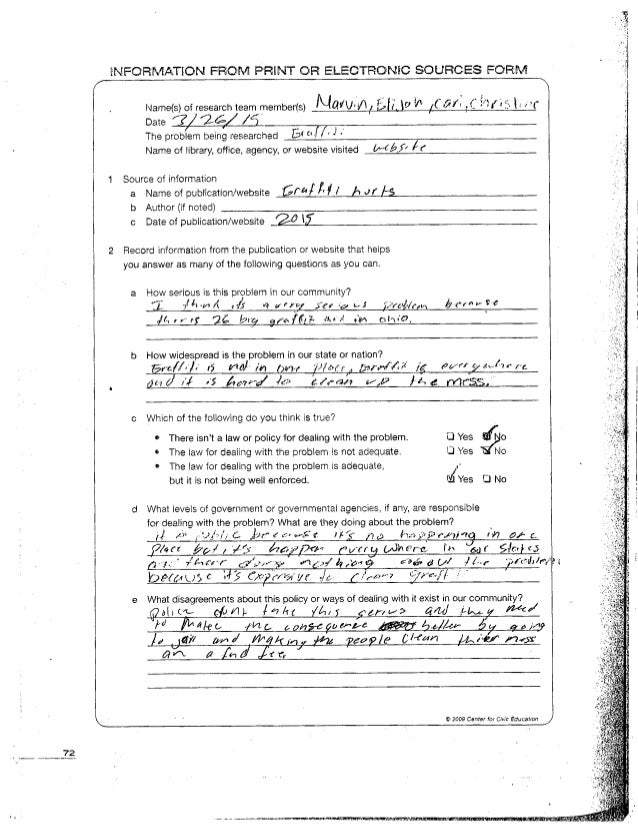 INFORMATION FROM PRINT OR ELECTRONIC SOURCES FORM
Name(s) of research team member(s) Marvin, Elijah, cari, christine
Date 3/26/15
The problem being researched Graffiti
Name of library, office, agency, or website visited website
1 Source of information
a Name of publication/website Graffiti hurts
b Author (if noted)
c Date of publication/website 2015
2 Record information from the publication or website that helps
you answer as many of the following questions as you can.
a How serious is this problem in our community?
I think its a very serious problem because
there is 26 big graffiti in ohio.
b How widespread is the problem in our state or nation?
Graffiti is not in one place, Graffiti is everywhere
and it is hard to clean up the mess.
c Which of the following do you think is true?
• There isn't a law or policy for dealing with the problem. Yes No
• The law for dealing with the problem is not adequate. Yes No
• The law for dealing with the problem is adequate,
but it is not being well enforced. Yes No
d What levels of government or governmental agencies, if any, are responsible
for dealing with the problem? What are they doing about the problem?
it is public because it's no happening in one
place but it's happen every where in our states
there doing nothing about the problem
because it's expensive to clean graffiti
e What disagreements about this policy or ways of dealing with it exist in our community?
Police dont take this serius and they need
to the consequence better by going
to jail and making the people clean mess
an a fee
© 2009 Center for Civic Education
72